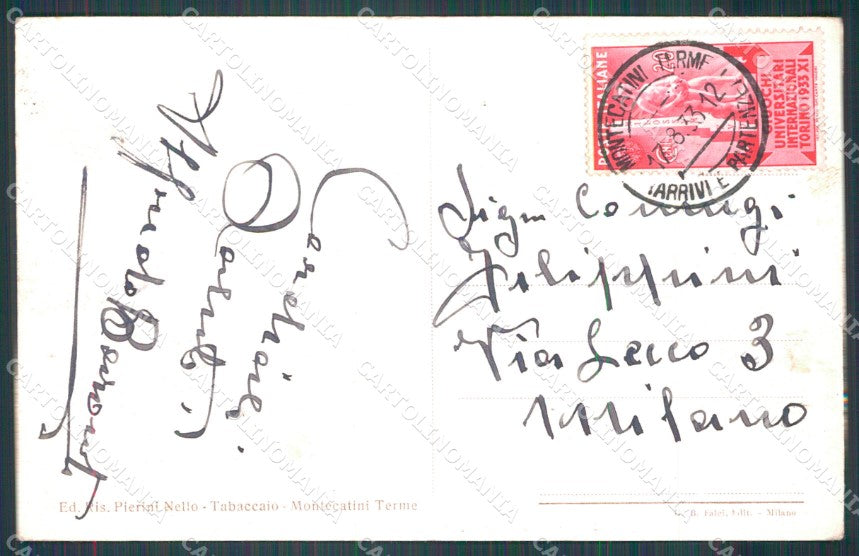 Cordiali
Saluti
Alfredo
POSTE ITALIANE
GIOCHI
UNIVERSITARI
INTERNAZIONALI
TORINO 1933 XI
MONTECATINI TERME
17.8.33.12
(ARRIVI E PARTENZE)
Sign Coniugi
Filippini
Via Lecco 3
Milano
Ed. Ris. Pierini Nello - Tabaccaio - Montecatini Terme
G. B. Falci, Edit. - Milano
CARTOLINOMANIA